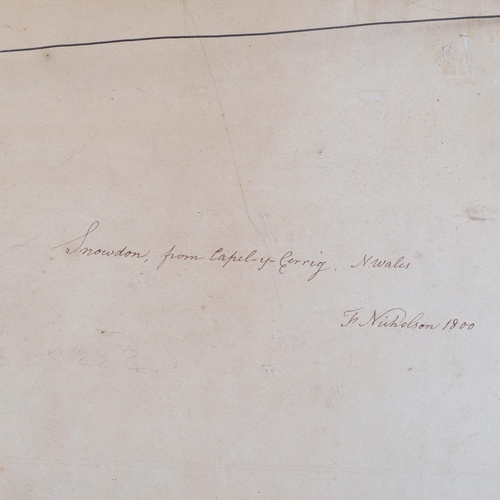 Snowdon, from Capel-y-Cerrig. N. Wales
F Nicholson 1800